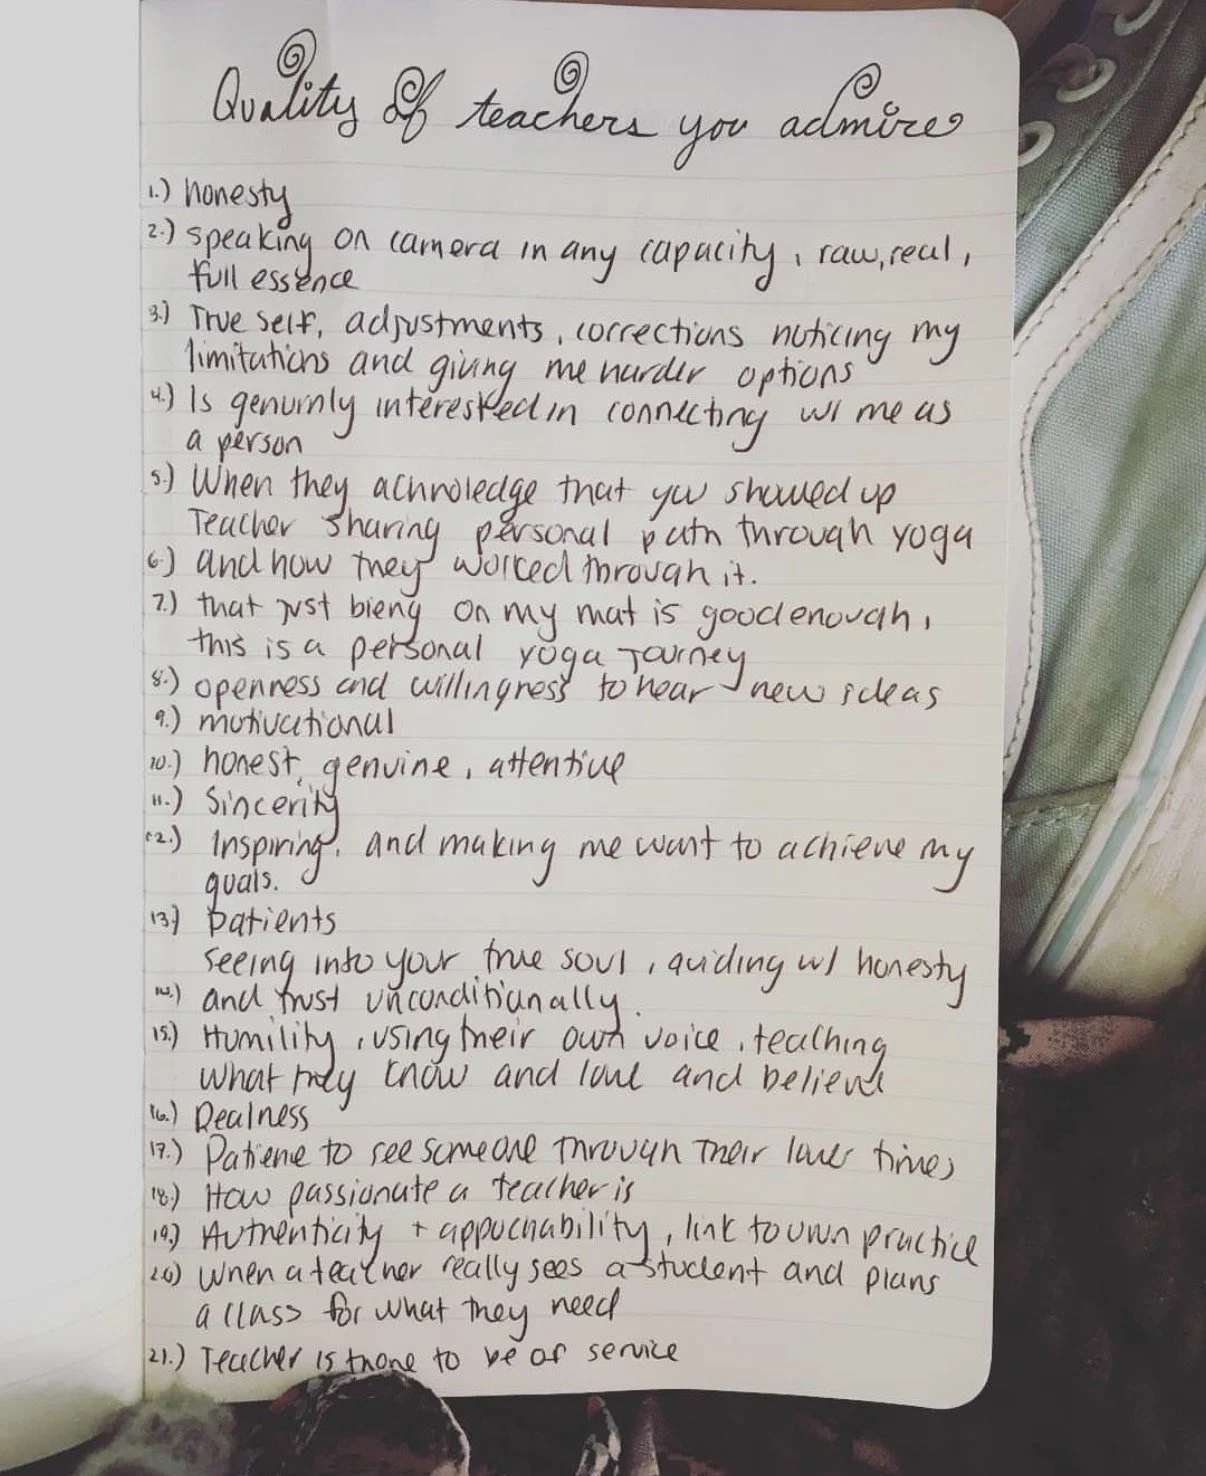 Quality Of teachers you admire
1.) honesty
2.) speaking on camera in any capacity, raw, real,
full essence
3.) True self, adjustments, corrections noticing my
limitations and giving me harder options
4.) Is genuinly interested in connecting w/ me as
a person
5.) When they acknoledge that you showed up
Teacher sharing personal path through yoga
6.) and how they worked through it.
7.) that just bieng on my mat is good enough,
this is a personal yoga Journey
8.) openness and willingness to hear new ideas
9.) motivational
10.) honest, genuine, attentive
11.) Sincerity
12.) Inspiring, and making me want to achieve my
goals.
13.) patients
seeing into your true soul, guiding w/ honesty
14.) and trust unconditionally.
15.) Humility, using their own voice, teaching
what they know and love and believe
16.) Realness
17.) Patience to see someone through their times
18.) How passionate a teacher is
19.) Authenticity + appochability, link to own practice
20.) When a teacher really sees a student and plans
a class for what they need
21.) Teacher is to be of service